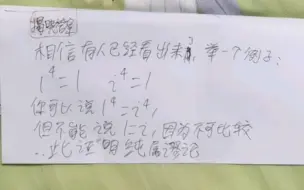 揭晓答案
相信有人已经看出来了,举一个例子:
1⁴=1 i⁴=1
你可以说1⁴=i⁴,
但不能说1=i,因为不可比较
∴此证明纯属谬论